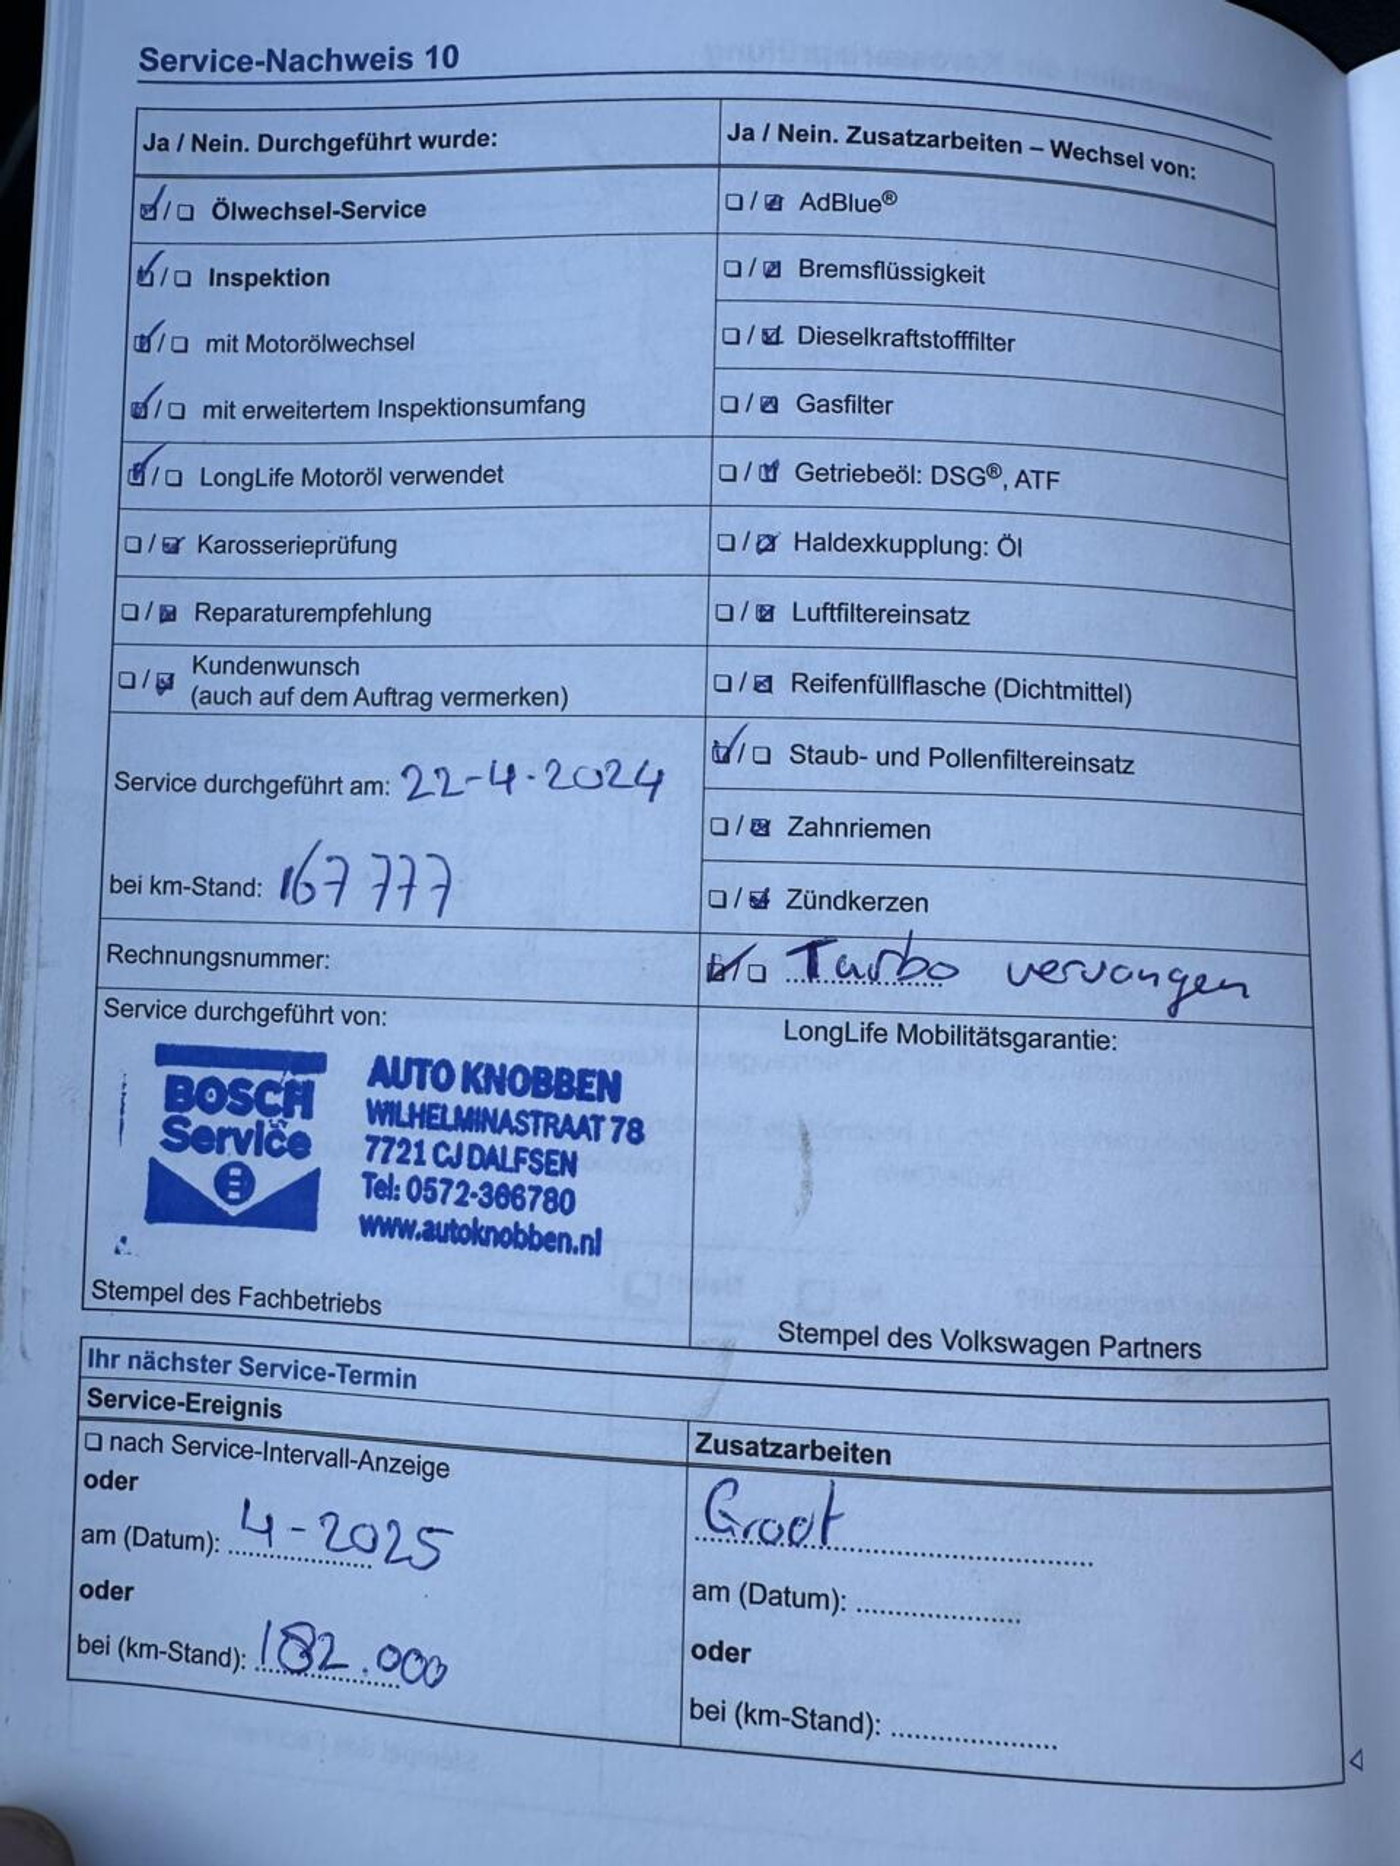 Service-Nachweis 10
Ja / Nein. Durchgeführt wurde:
☑/☐ Ölwechsel-Service
☑/☐ Inspektion
☑/☐ mit Motorölwechsel
☑/☐ mit erweitertem Inspektionsumfang
☑/☐ LongLife Motoröl verwendet
☐/☑ Karosserieprüfung
☐/☑ Reparaturempfehlung
☐/☑ Kundenwunsch
(auch auf dem Auftrag vermerken)
Service durchgeführt am: 22-4-2024
bei km-Stand: 167 777
Rechnungsnummer:
Service durchgeführt von:
BOSCH
Service
AUTO KNOBBEN
WILHELMINASTRAAT 78
7721 CJ DALFSEN
Tel: 0572-386780
www.autoknobben.nl
Stempel des Fachbetriebs
Ja / Nein. Zusatzarbeiten – Wechsel von:
☐/☑ AdBlue®
☐/☑ Bremsflüssigkeit
☐/☑ Dieselkraftstofffilter
☐/☑ Gasfilter
☐/☑ Getriebeöl: DSG®, ATF
☐/☑ Haldexkupplung: Öl
☐/☑ Luftfiltereinsatz
☐/☑ Reifenfüllflasche (Dichtmittel)
☑/☐ Staub- und Pollenfiltereinsatz
☐/☑ Zahnriemen
☐/☑ Zündkerzen
☑/☐ Turbo vervangen
LongLife Mobilitätsgarantie:
Stempel des Volkswagen Partners
Ihr nächster Service-Termin
Service-Ereignis
☐ nach Service-Intervall-Anzeige
oder
am (Datum): 4-2025
oder
bei (km-Stand): 182.000
Zusatzarbeiten
Groot
am (Datum): ....................
oder
bei (km-Stand): ....................